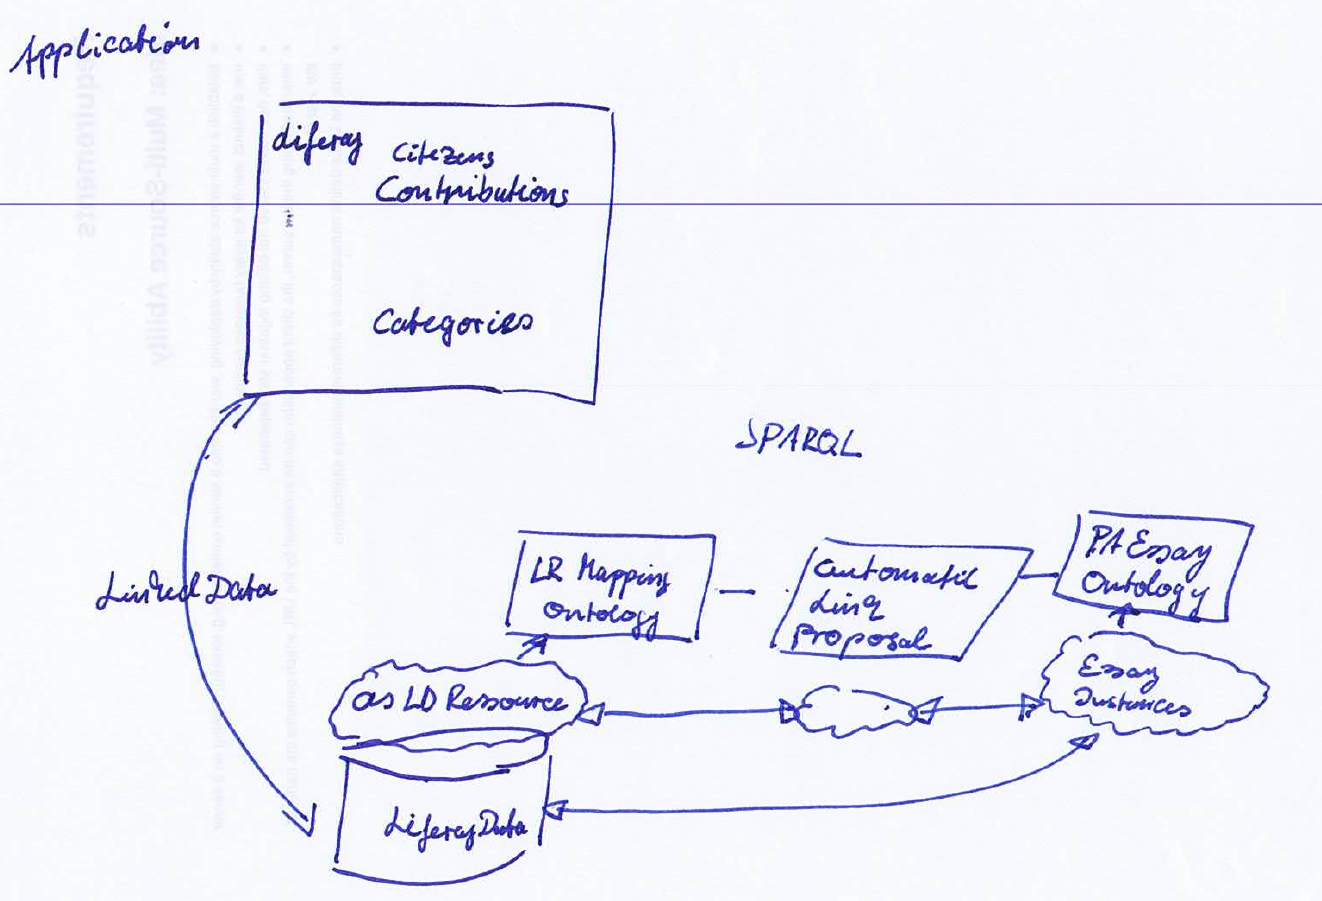 Application
Liferay
Citizens
Contributions
Categories
SPARQL
Linked Data
LR Mapping
Ontology
Automatic
Linq
Proposal
PA Essay
Ontology
as LD Ressource
Essay
Instances
Liferay Data